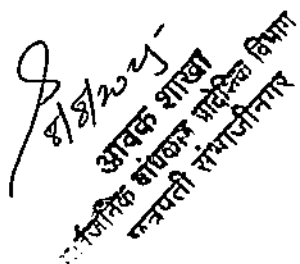 8/8/2025
आवक शाखा
र्वजनिक बांधकाम प्रादेशिक विभाग
छत्रपती संभाजीनगर